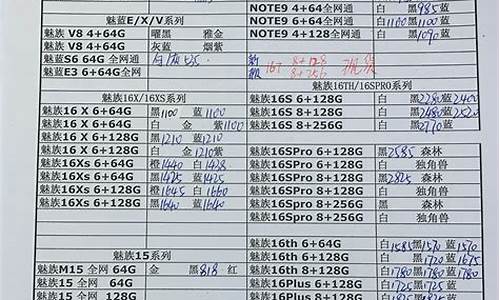 NOTE9 4+64全网通 白 黑985蓝
魅蓝E/X/V系列 NOTE9 6+64全网通 白1100黑1100蓝
魅族 V8 4+64G 曜黑 雅金 NOTE9 4+128全网通 白 黑1090蓝
魅族 V8 4+64G 灰蓝 烟紫
魅蓝S6 64G 全网通
魅蓝E3 6+64G全网通
16T 8+128
8+256
魅族16X/16XS系列 魅族16TH/16SPRO系列
魅族16 X 6+64G 黑1100 蓝1100 魅族16S 6+128G 白 黑2280蓝2400
魅族16 X 6+64G 白 金 紫1100 魅族16S 8+128G 白 黑2480蓝2520
魅族16 X 6+128G 黑1210 蓝1210 魅族16S 8+256G 白 黑2770蓝
魅族16 X 6+128G 白 金 蓝1210紫
魅族16Xs 6+64G 橙1440 白1428 魅族16SPro 6+128G 黑2585 森林
魅族16Xs 6+64G 黑1425 蓝1425 魅族16SPro 6+128G 白 独角兽
魅族16Xs 6+128G 橙1645 白1660 魅族16SPro 8+128G 黑2825 森林
魅族16Xs 6+128G 黑1640 蓝1640 魅族16SPro 8+128G 白 独角兽
魅族16SPro 8+256G 黑 森林
魅族16SPro 8+256G 白 独角兽
魅族15系列 魅族16th 6+64G 白1585黑1570蓝1570
魅族M15 全网 64G 金 黑818 红 魅族16th 6+128G 白 黑1720蓝1675
魅族15 全网 64G 魅族16th 8+128G 白1780黑1780蓝1780
魅族15 全网 128G 魅族16Plus 6+128G 白1725黑1725蓝
魅族16Plus 8+128G